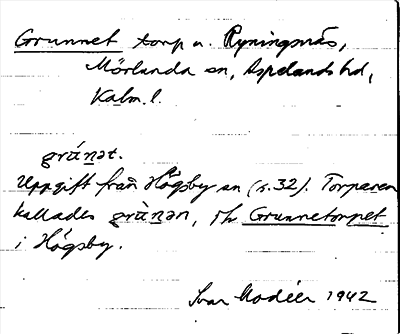 Grunnet torp u. Ryningsnäs,
Mörlunda sn, Aspelands hd,
Kalm. l.
grúnət.
Uppgift från Högsby sn (s. 32). Torparen
kallades grùnən, jfr Grunnetorpet
i Högsby.
Ivar Modéer 1942